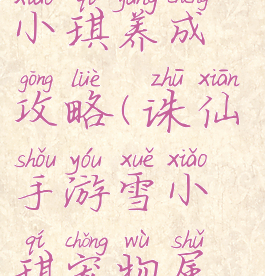 xiǎo qí yǎng chéng
小琪养成
gōng lüè zhū xiān
攻略(诛仙
shǒu yóu xuě xiǎo
手游雪小
qí chǒng wù shǔ
琪宠物属